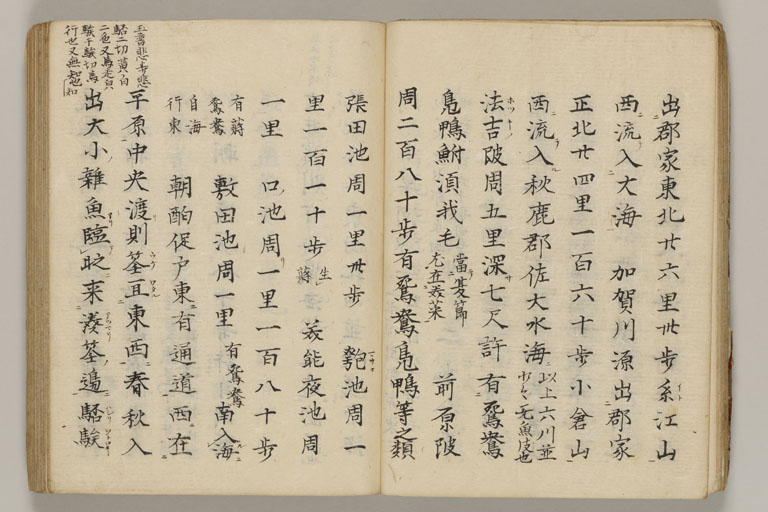 出郡家東北廿六里卅歩糸江山
西流入大海 加賀川源出郡家
正北廿四里一百六十歩小倉山
西流入秋鹿郡佐大水海以上六川並
少々无魚川也
法吉陂周五里深七尺許有鴛鴦
鳬鴨鮒須我毛當夏節
尤在美菜 前原陂
周二百八十歩有鴛鴦鳬鴨等之類
張田池周一里卅歩 匏池周一
里一百一十歩生
蒋 美能夜池周
一里 口池周一里一百八十歩
有蒋
鴛鴦 敷田池周一里有鴛鴦 南入海
自海
行東 朝酌促戸東有通道西在
平原中央渡則筌亘東西春秋入
出大小雜魚臨時来湊筌邊駱駼